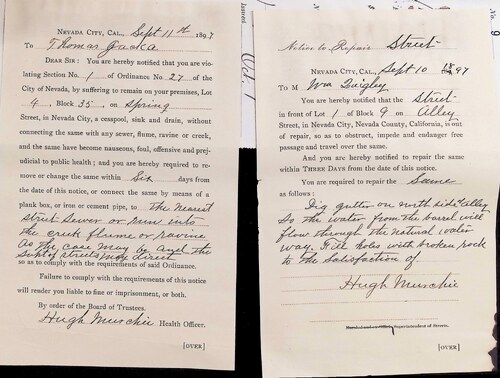 NEVADA CITY, CAL., Sept 11th 1897
To Thomas
DEAR SIR: You are hereby notified that you are vio-
lating Section No. 1 of Ordinance No. 27 of the
City of Nevada, by suffering to remain on your premises, Lot
4, Block 35, on Spring
Street, in Nevada City, a cesspool, sink and drain, without
connecting the same with any sewer, flume, ravine or creek,
and the same have become nauseous, foul, offensive and prej-
udicial to public health; and you are hereby required to re-
move or change the same within Six days from
the date of this notice, or connect the same by means of a
plank box, or iron or cement pipe, to the nearest
street Sewer or run into
the creek flume or ravine
as the case may be and the
Supt of streets may direct
so as to comply with the requirements of said Ordinance.
Failure to comply with the requirements of this notice
will render you liable to fine or imprisonment, or both.
By order of the Board of Trustees.
Hugh Murchie Health Officer.
[OVER]
Issued
Notice to Repair Street
NEVADA CITY, CAL., Sept 10 1897
To M Wm Quigley
You are hereby notified that the Street
in front of Lot 1 of Block 9 on Alley
Street, in Nevada City, Nevada County, California, is out
of repair, so as to obstruct, impede and endanger free
passage and travel over the same.
And you are hereby notified to repair the same
within THREE DAYS from the date of this notice.
You are required to repair the Same
as follows:
Dig gutter on north side alley
So the water from the barrel will
flow through the natural water
way. Fill holes with broken rock
to the Satisfaction of
Hugh Murchie
Superintendent of Streets.
[OVER]
No. 9